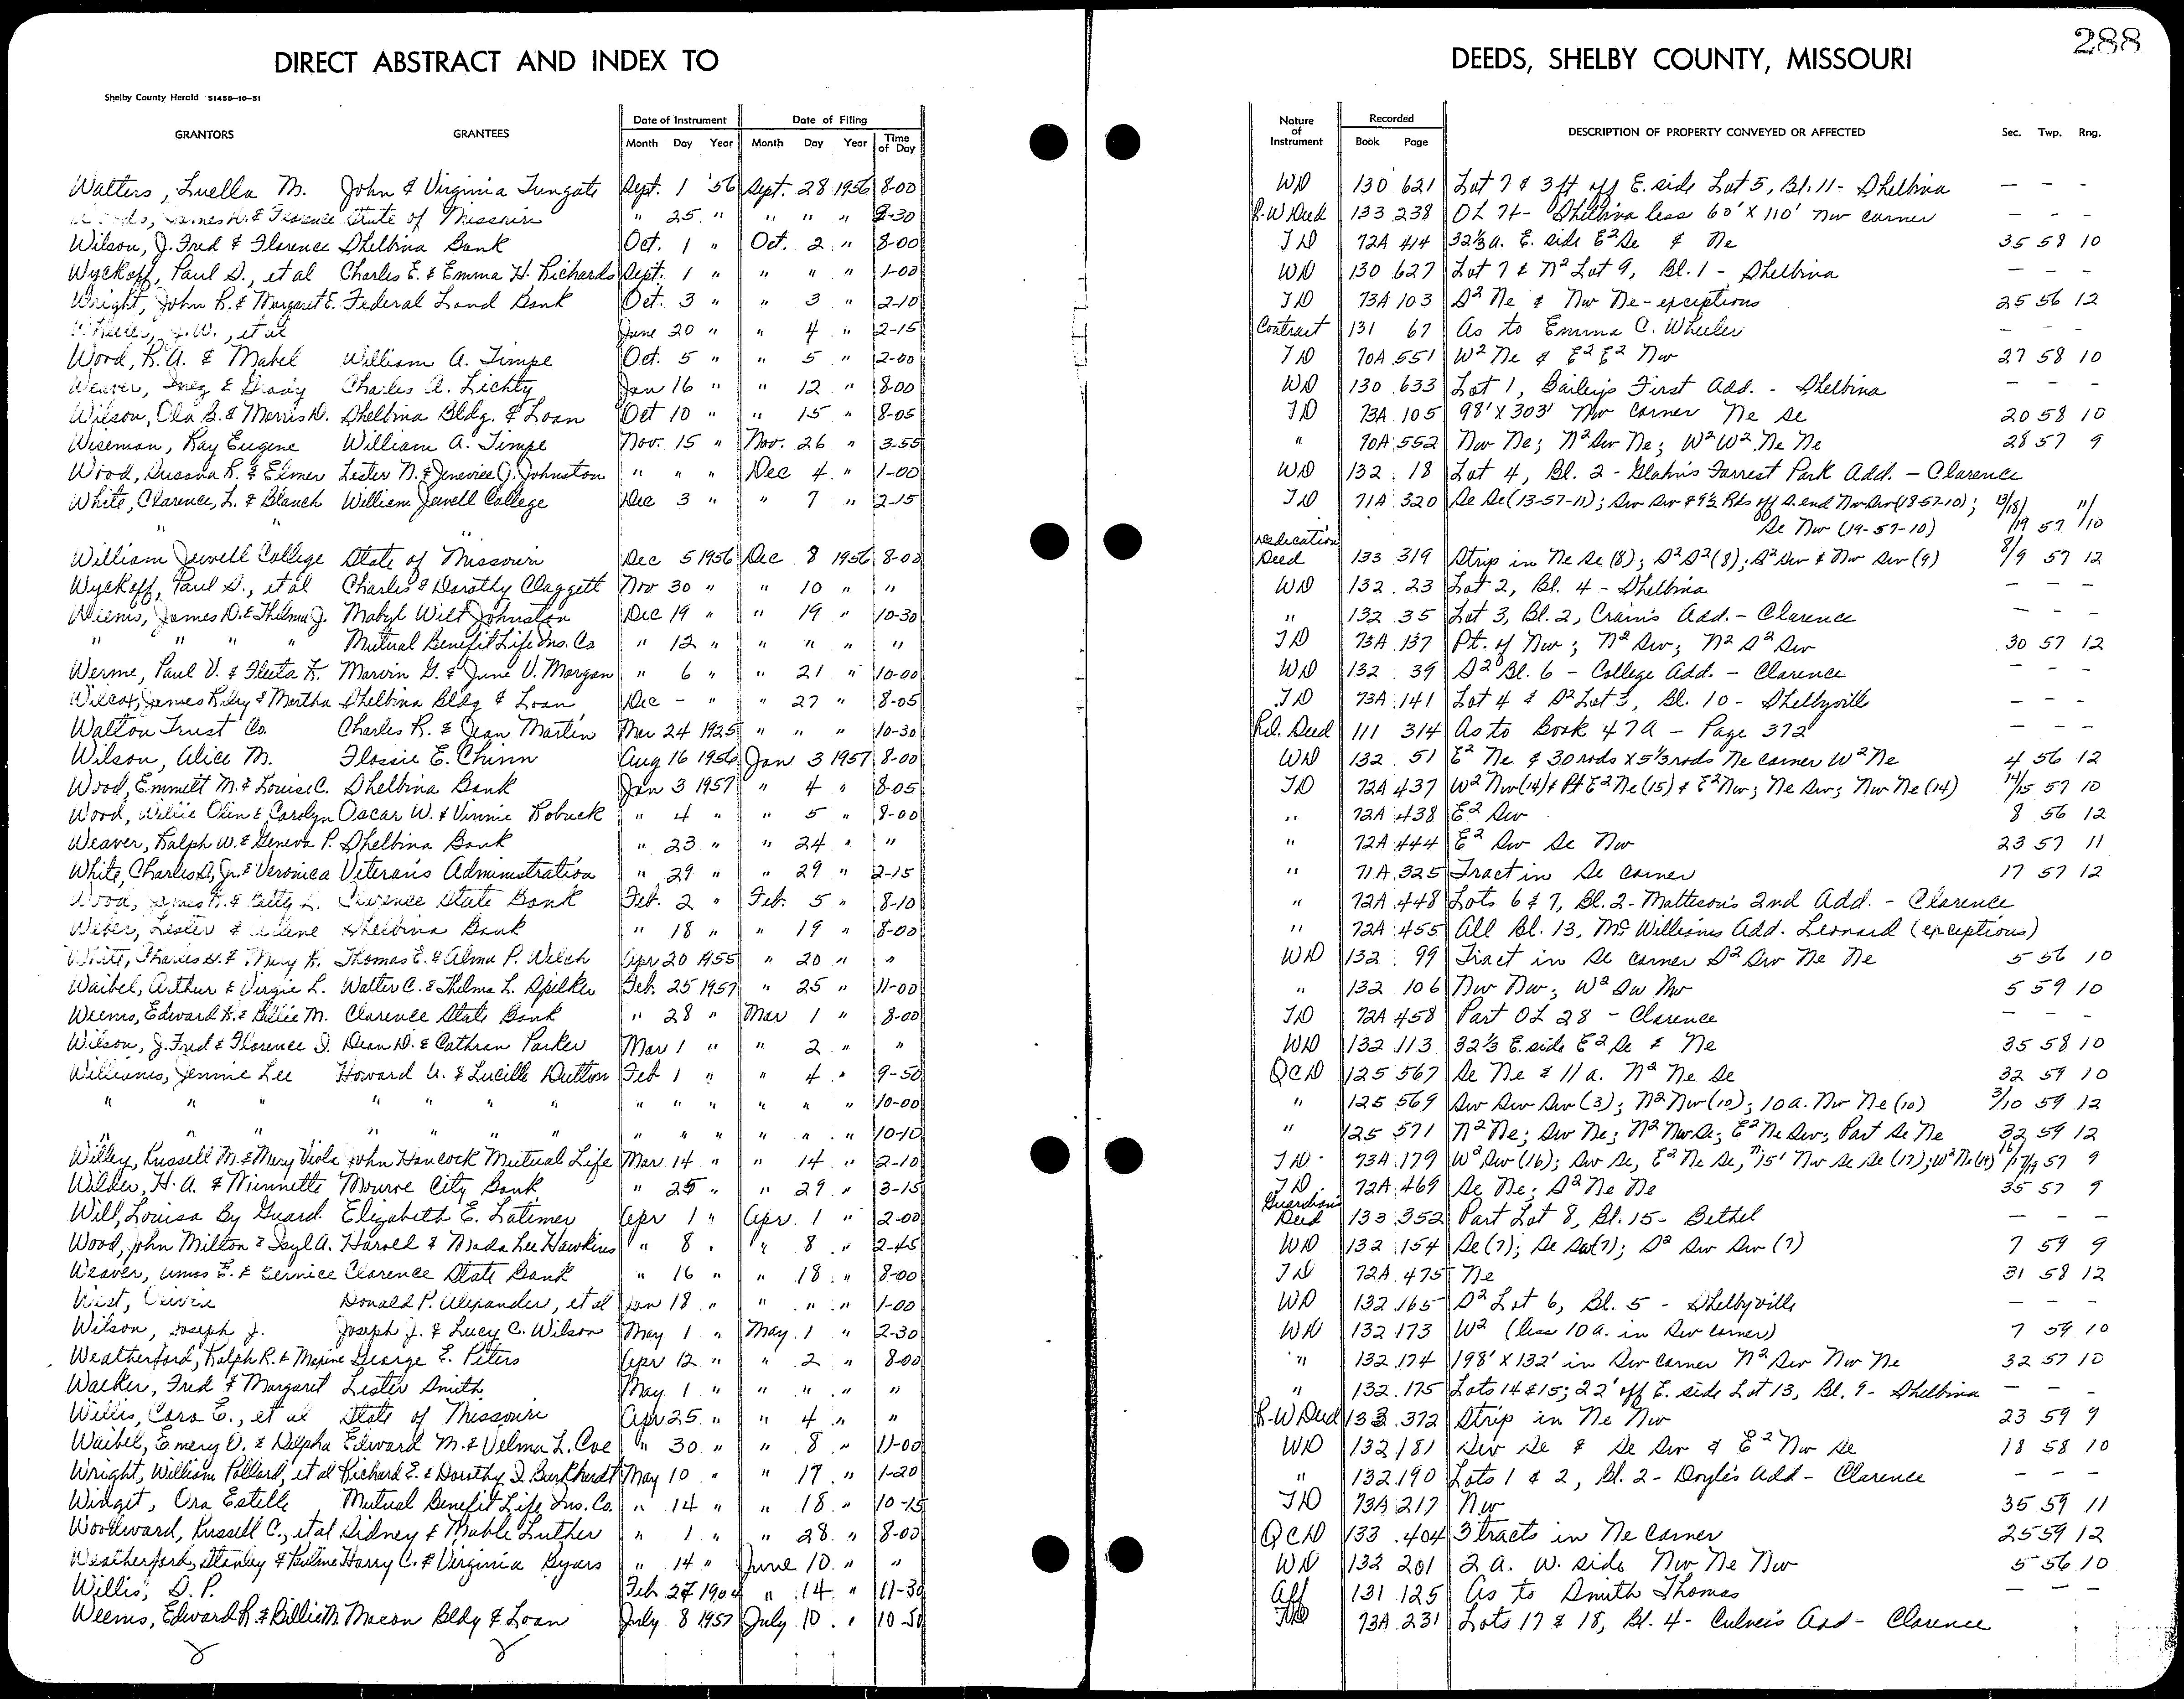 288
DIRECT ABSTRACT AND INDEX TO DEEDS, SHELBY COUNTY, MISSOURI
Shelby County Herald 51458-10-51
GRANTORS GRANTEES Date of Instrument Month Day Year Date of Filing Month Day Year Time of Day Nature of Instrument Recorded Book Page DESCRIPTION OF PROPERTY CONVEYED OR AFFECTED Sec. Twp. Rng.
Walters, Luella M. John & Virginia Tungate Sept. 1 '56 Sept. 28 1956 8-00 WD 130 621 Lot 7 & 3 ft off E. side Lot 5, Bl. 11 - Shelbina — — —
James H. & Florence State of Missouri " 25 " " " " 8-30 R-W Deed 133 238 OL 74 - Shelbina less 60' X 110' Nw corner — — —
Wilson, J. Fred & Florence Shelbina Bank Oct. 1 " Oct. 2 " 8-00 TD 72A 414 32⅓ a. E. side E² Se & Ne 35 58 10
Wyckoff, Paul S., et al Charles E. & Emma H. Richards Sept. 1 " " " " 1-00 WD 130 627 Lot 7 & N² Lot 9, Bl. 1 - Shelbina — — —
Wright, John R. & Margaret E. Federal Land Bank Oct. 3 " " 3 " 2-10 TD 73A 103 S² Ne & Nw Ne - exceptions 25 56 12
J. W., et al June 20 " " 4 " 2-15 Contract 131 67 As to Emma C. Wheeler — — —
Wood, R. A. & Mabel William A. Timpe Oct. 5 " " 5 " 2-00 TD 70A 551 W² Ne & E² E² Nw 27 58 10
Weaver, Inez & Grady Charles A. Lichty Jan 16 " " 12 " 8-00 WD 130 633 Lot 1, Bailey's First Add. - Shelbina — — —
Wilson, Ola B. & Morris D. Shelbina Bldg. & Loan Oct 10 " " 15 " 8-05 TD 73A 105 98' X 303' Nw corner Ne Se 20 58 10
Wiseman, Ray Eugene William A. Timpe Nov. 15 " Nov. 26 " 3-55 " 70A 552 Nw Ne; N² Sw Ne; W² W² Ne Ne 28 57 9
Wood, Sussna R. & Elmer Lester N. & Jeneviee J. Johnston " " " Dec 4 " 1-00 WD 132 18 Lot 4, Bl. 2 - Glahn's Forrest Park Add. - Clarence
White, Clarence, L. & Blanch William Jewell College Dec 3 " " 7 " 2-15 TD 71A 320 Se Se (13-57-11); Sw Sw & 9½ Rds off S. end Nw Sw (18-57-10); 13/18/ 11/
" " Se Nw (19-57-10) /19 57 /10
William Jewell College State of Missouri Dec 5 1956 Dec 8 1956 8-00 Dedication Deed 133 319 Strip in Ne Se (8); S² S² (8); S² Sw & Nw Sw (9) 8/9 57 12
Wyckoff, Paul S., et al Charles & Dorothy Claggett Nov 30 " " 10 " " WD 132 23 Lot 2, Bl. 4 - Shelbina — — —
Weems, James D. & Thelma J. Mabyl Wilt Johnston Dec 19 " " 19 " 10-30 " 132 35 Lot 3, Bl. 2, Crain's Add. - Clarence — — —
" " " " Mutual Benefit Life Ins. Co " 12 " " " " " TD 73A 137 Pt. of Nw; N² Sw; N² S² Sw 30 57 12
Werme, Paul V. & Fleeta K. Marvin G. & June V. Morgan " 6 " " 21 " 10-00 WD 132 39 S² Bl. 6 - College Add. - Clarence — — —
Wilcox, James Riley & Martha Shelbina Bldg & Loan Dec - " " 27 " 8-05 TD 73A 141 Lot 4 & S² Lot 3, Bl. 10 - Shelbyville — — —
Walton Trust Co. Charles R. & Jean Martin Mar 24 1925 " " " 10-30 Rel. Deed 111 314 As to Book 47A - Page 372 — — —
Wilson, Alice M. Flossie E. Chinn Aug 16 1956 Jan 3 1957 8-00 WD 132 51 E² Ne & 30 rods X 5⅓ rods Ne corner W² Ne 4 56 12
Wood, Emmett M. & Louise C. Shelbina Bank Jan 3 1957 " 4 " 8-05 TD 72A 437 W² Nw (14) & Pt E² Ne (15) & E² Nw; Ne Sw; Nw Ne (14) 14/15 57 10
Wood, Willie Olin & Carolyn Oscar W. & Vinnie Robuck " 4 " " 5 " 8-00 " 72A 438 E² Sw 8 56 12
Weaver, Ralph W. & Geneva P. Shelbina Bank " 23 " " 24 " " " 72A 444 E² Sw Se Nw 23 57 11
White, Charles D, Jr. & Veronica Veteran's Administration " 29 " " 29 " 2-15 " 71A 325 Tract in Se corner 17 57 12
Wood, James K. & Betty L. Clarence State Bank Feb. 2 " Feb. 5 " 8-10 " 72A 448 Lots 6 & 7, Bl. 2 - Matteson's 2nd Add. - Clarence
Weber, Lester & Arlene Shelbina Bank " 18 " " 19 " 8-00 " 72A 455 All Bl. 13, McWilliams Add. Leonard (exceptions)
White, Charles & Mary K. Thomas E. & Alma P. Welch Apr 20 1955 " 20 " " WD 132 99 Tract in Se corner S² Sw Ne Ne 5 56 10
Waibel, Arthur & Virgie L. Walter C. & Thelma L. Spilker Feb. 25 1957 " 25 " 11-00 " 132 106 Nw Nw; W² Sw Nw 5 59 10
Weems, Edward R. & Billie M. Clarence State Bank " 28 " Mar 1 " 8-00 TD 72A 458 Part OL 28 - Clarence — — —
Wilson, J. Fred & Florence I. Dean D. & Cathran Parker Mar 1 " " 2 " " WD 132 113 32⅓ E. side E² Se & Ne 35 58 10
Williams, Jennie Lee Howard U. & Lucille Dutton Feb 1 " " 4 " 9-50 QCD 125 567 Se Ne & 11 a. N² Ne Se 32 59 10
" " " " " " " " " " " " " 10-00 " 125 569 Sw Sw Sw (3); N² Nw (10); 10 a. Nw Ne (10) 3/10 59 12
" " " " " " " " " " " " " 10-10 " 125 571 N² Ne; Sw Ne; N² Nw Se; E² Ne Sw; Part Se Ne 32 59 12
Willey, Russell M. & Mary Viola John Hancock Mutual Life Mar. 14 " " 14 " 2-10 TD 73A 179 W² Sw (16); Sw Se, E² Ne Se, 15' Nw Se Se (17); W² Ne (19) 16/17/19 57 9
Wilder, H. A. & Minnette Monroe City Bank " 25 " " 29 " 3-15 TD 72A 469 Se Ne; S² Ne Ne 35 57 9
Will, Louisa By Guard. Elizabeth E. Latimer Apr 1 " Apr. 1 " 2-00 Guardian's Deed 133 352 Part Lot 8, Bl. 15 - Bethel — — —
Wood, John Milton & Isyl A. Harold & Nada Lee Hawkins " 8 " " 8 " 2-45 WD 132 154 Se (7); Se Sw (7); S² Sw Sw (7) 7 59 9
Weaver, Amos E. & Bernice Clarence State Bank " 16 " " 18 " 8-00 TD 72A 475 Ne 31 58 12
West, Donald P. Alexander, et al Jan 18 " " " " 1-00 WD 132 165 S² Lot 6, Bl. 5 - Shelbyville — — —
Wilson, Joseph J. Joseph J. & Lucy C. Wilson May 1 " May 1 " 2-30 WD 132 173 W² (less 10 a. in Sw corner) 7 59 10
Weatherford, Ralph R. & Maxine George E. Peters Apr 12 " " 2 " 8-00 " 132 174 198' X 132' in Sw corner N² Sw Nw Ne 32 57 10
Walker, Fred & Margaret Lester Smith May 1 " " " " " " 132 175 Lots 14 & 15; 22' off E. side Lot 13, Bl. 9 - Shelbina — — —
Willis, Cora E., et al State of Missouri Apr 25 " " 4 " " R-W Deed 133 372 Strip in Ne Nw 23 59 9
Waibel, Emery O. & Delpha Edward M. & Velma L. Coe " 30 " " 8 " 11-00 WD 132 181 Sw Se & Se Sw & E² Nw Se 18 58 10
Wright, William Pollard, et al Richard E. & Dorothy I. Burkhardt May 10 " " 17 " 1-20 " 132 190 Lots 1 & 2, Bl. 2 - Doyle's Add - Clarence — — —
Winget, Ora Estelle Mutual Benefit Life Ins. Co. " 14 " " 18 " 10-15 TD 73A 217 Nw 35 59 11
Woodward, Russell C., et al Sidney & Mable Luther " 1 " " 28 " 8-00 QCD 133 404 3 tracts in Ne corner 25 59 12
Weatherford, Stanley & Pauline Harry C. & Virginia Byars " 14 " June 10 " " WD 132 201 2 a. W. side Nw Ne Nw 5 56 10
Willis, S. P. Feb 27 1904 " 14 " 11-30 Aff 131 125 As to Smith Thomas — — —
Weems, Edward R. & Billie M. Macon Bldg & Loan July 8 1957 July 10 " 10-30 TD 73A 231 Lots 17 & 18, Bl. 4 - Culver's Add - Clarence